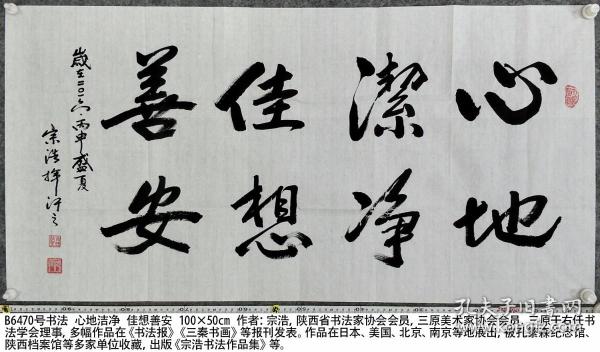 心地
潔净
佳想
善安
歲在二〇一六·丙申盛夏
宗浩挥汗之
B6470号书法 心地洁净 佳想善安 100×50cm 作者:宗浩,陕西省书法家协会会员,三原美术家协会会员,三原于右任书
法学会理事,多幅作品在《书法报》《三秦书画》等报刊发表。作品在日本、美国、北京、南京等地展出,被孔繁森纪念馆、
陕西档案馆等多家单位收藏,出版《宗浩书法作品集》等。
孔夫子旧书网